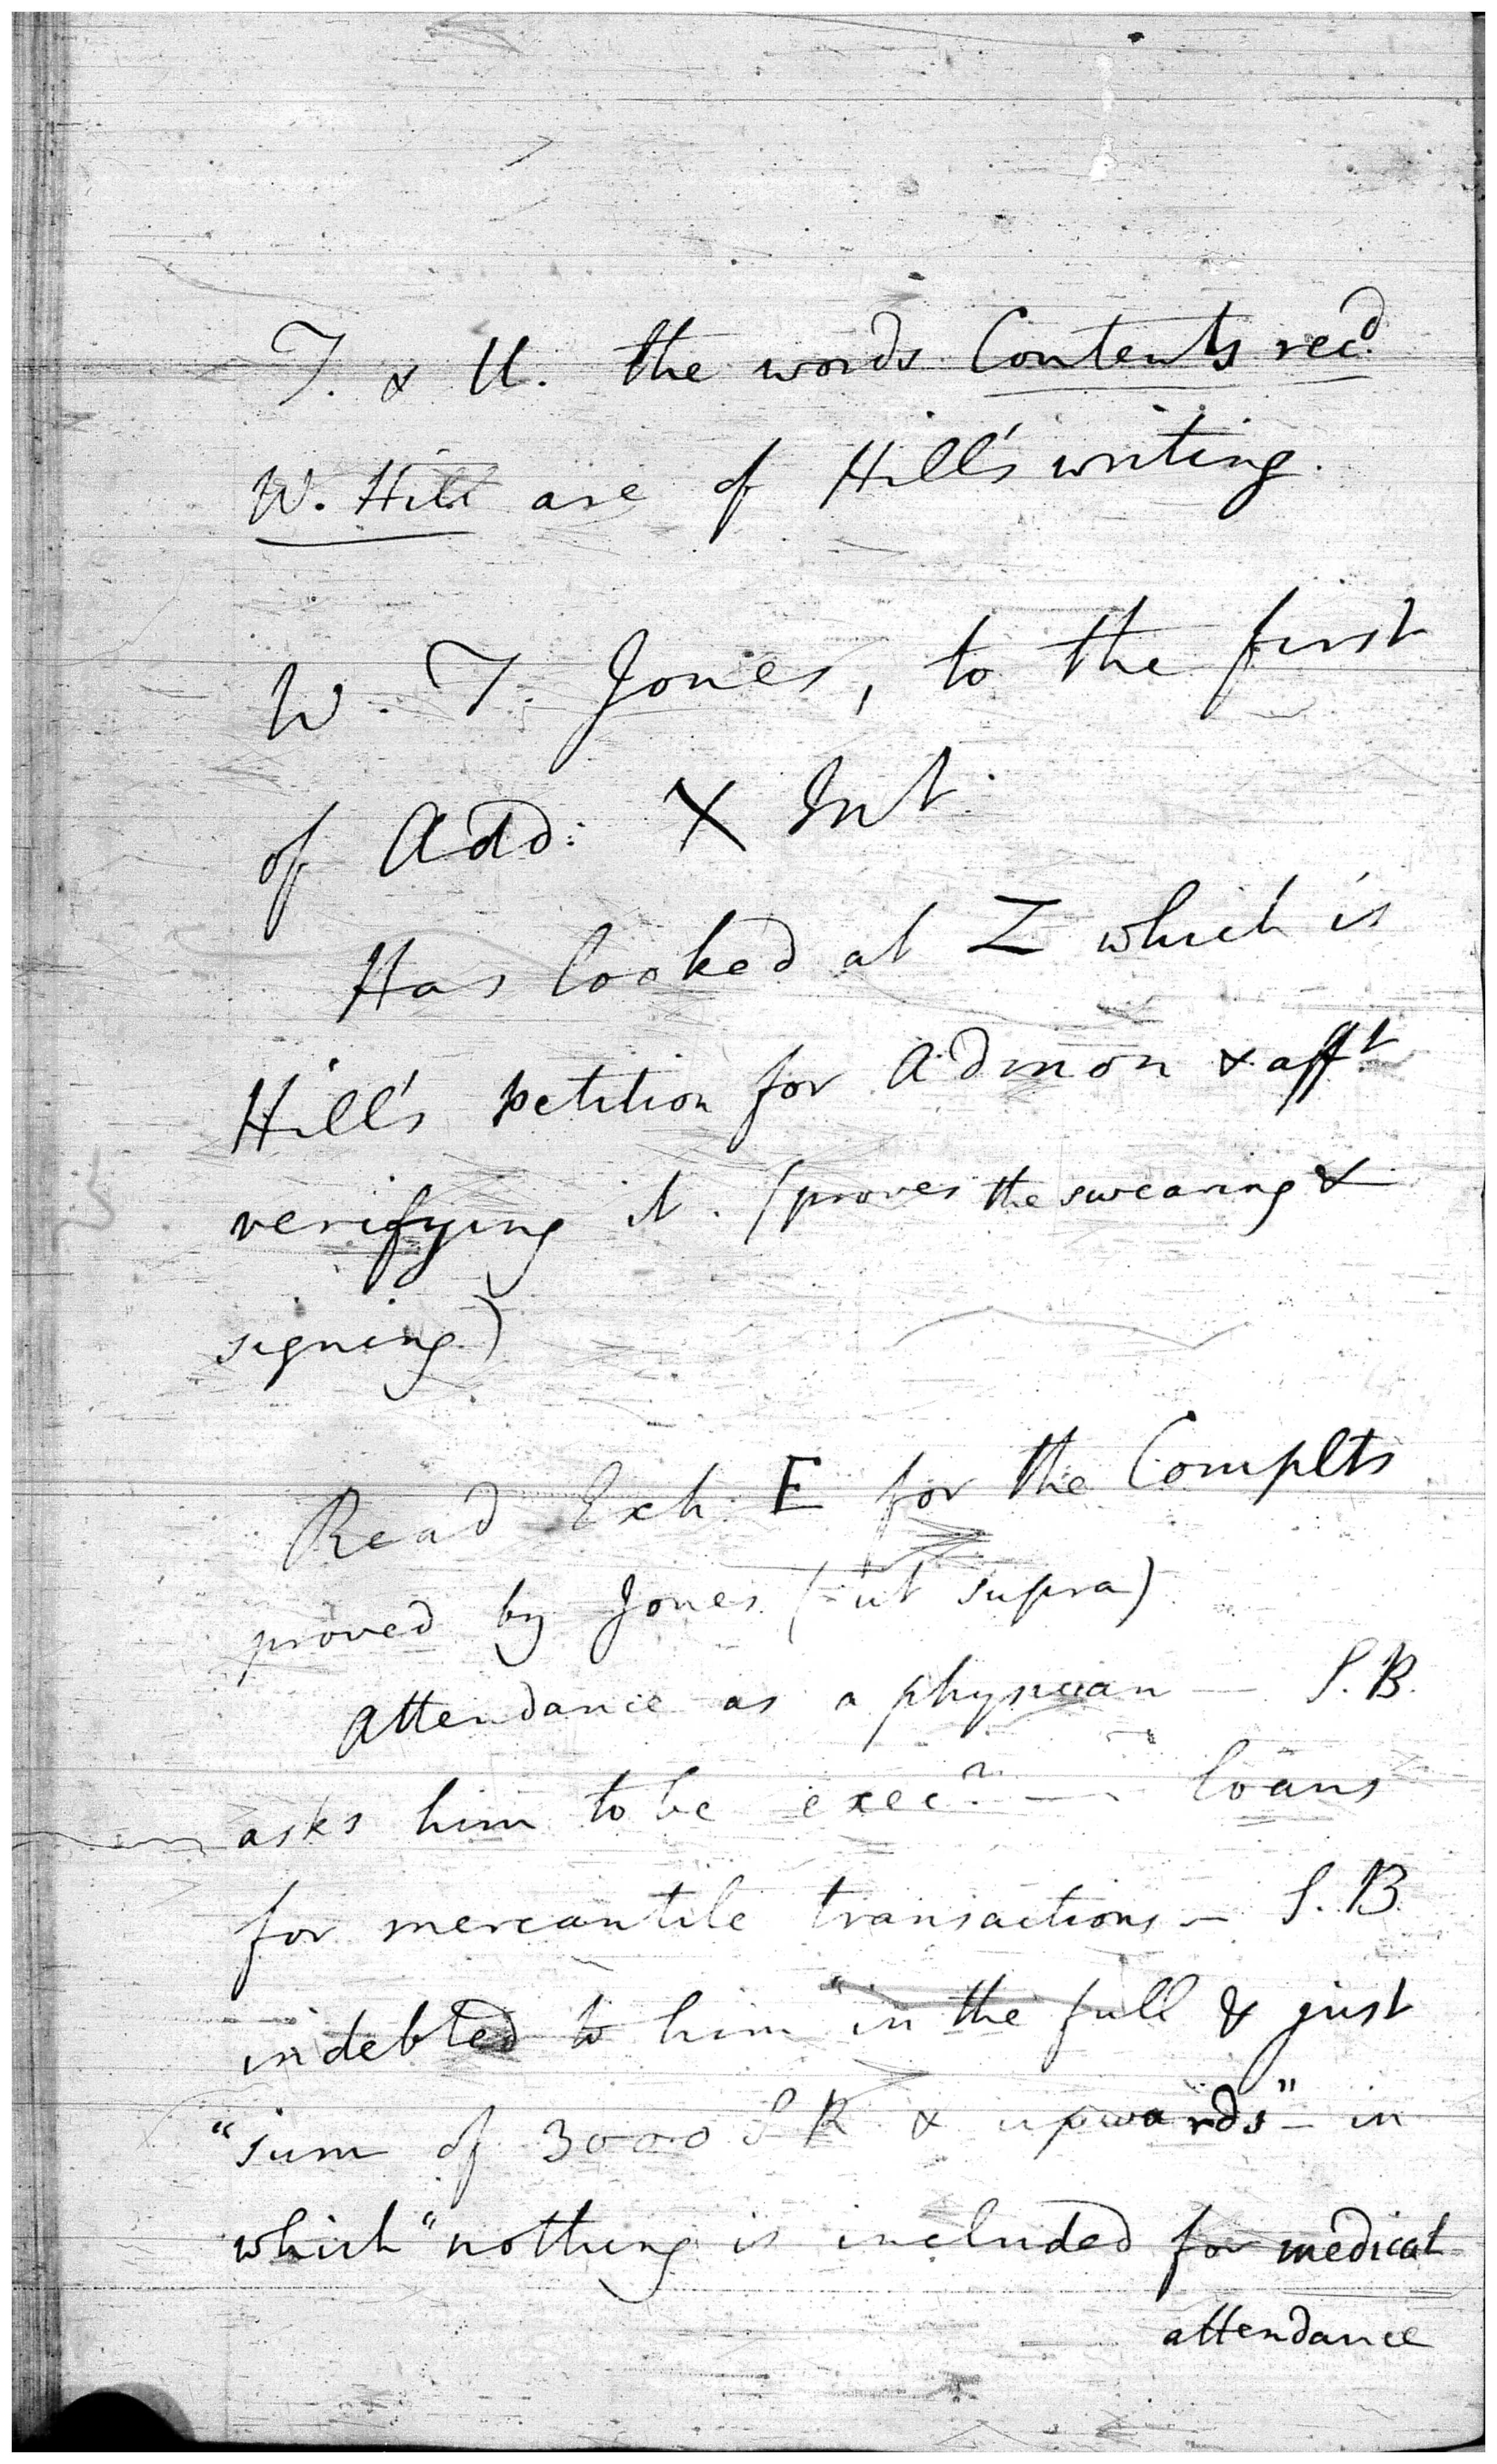 T. & U. the words Contents rec.d
W. Hill are of Hill's writing.
W. T. Jones, to the first
of Add: X Int.
Has looked at Z which is
Hill's petition for Admon & afft
verifying it. (proves the swearing &
signing)
Read Exh. E for the Complts
proved by Jones (ut supra)
attendance as a physician — S.B.
asks him to be exec.r — loans
for mercantile transactions — S.B.
indebted to him "in the full & just
"sum of 3000 S R & upwards" — in
which "nothing is included for medical
attendance